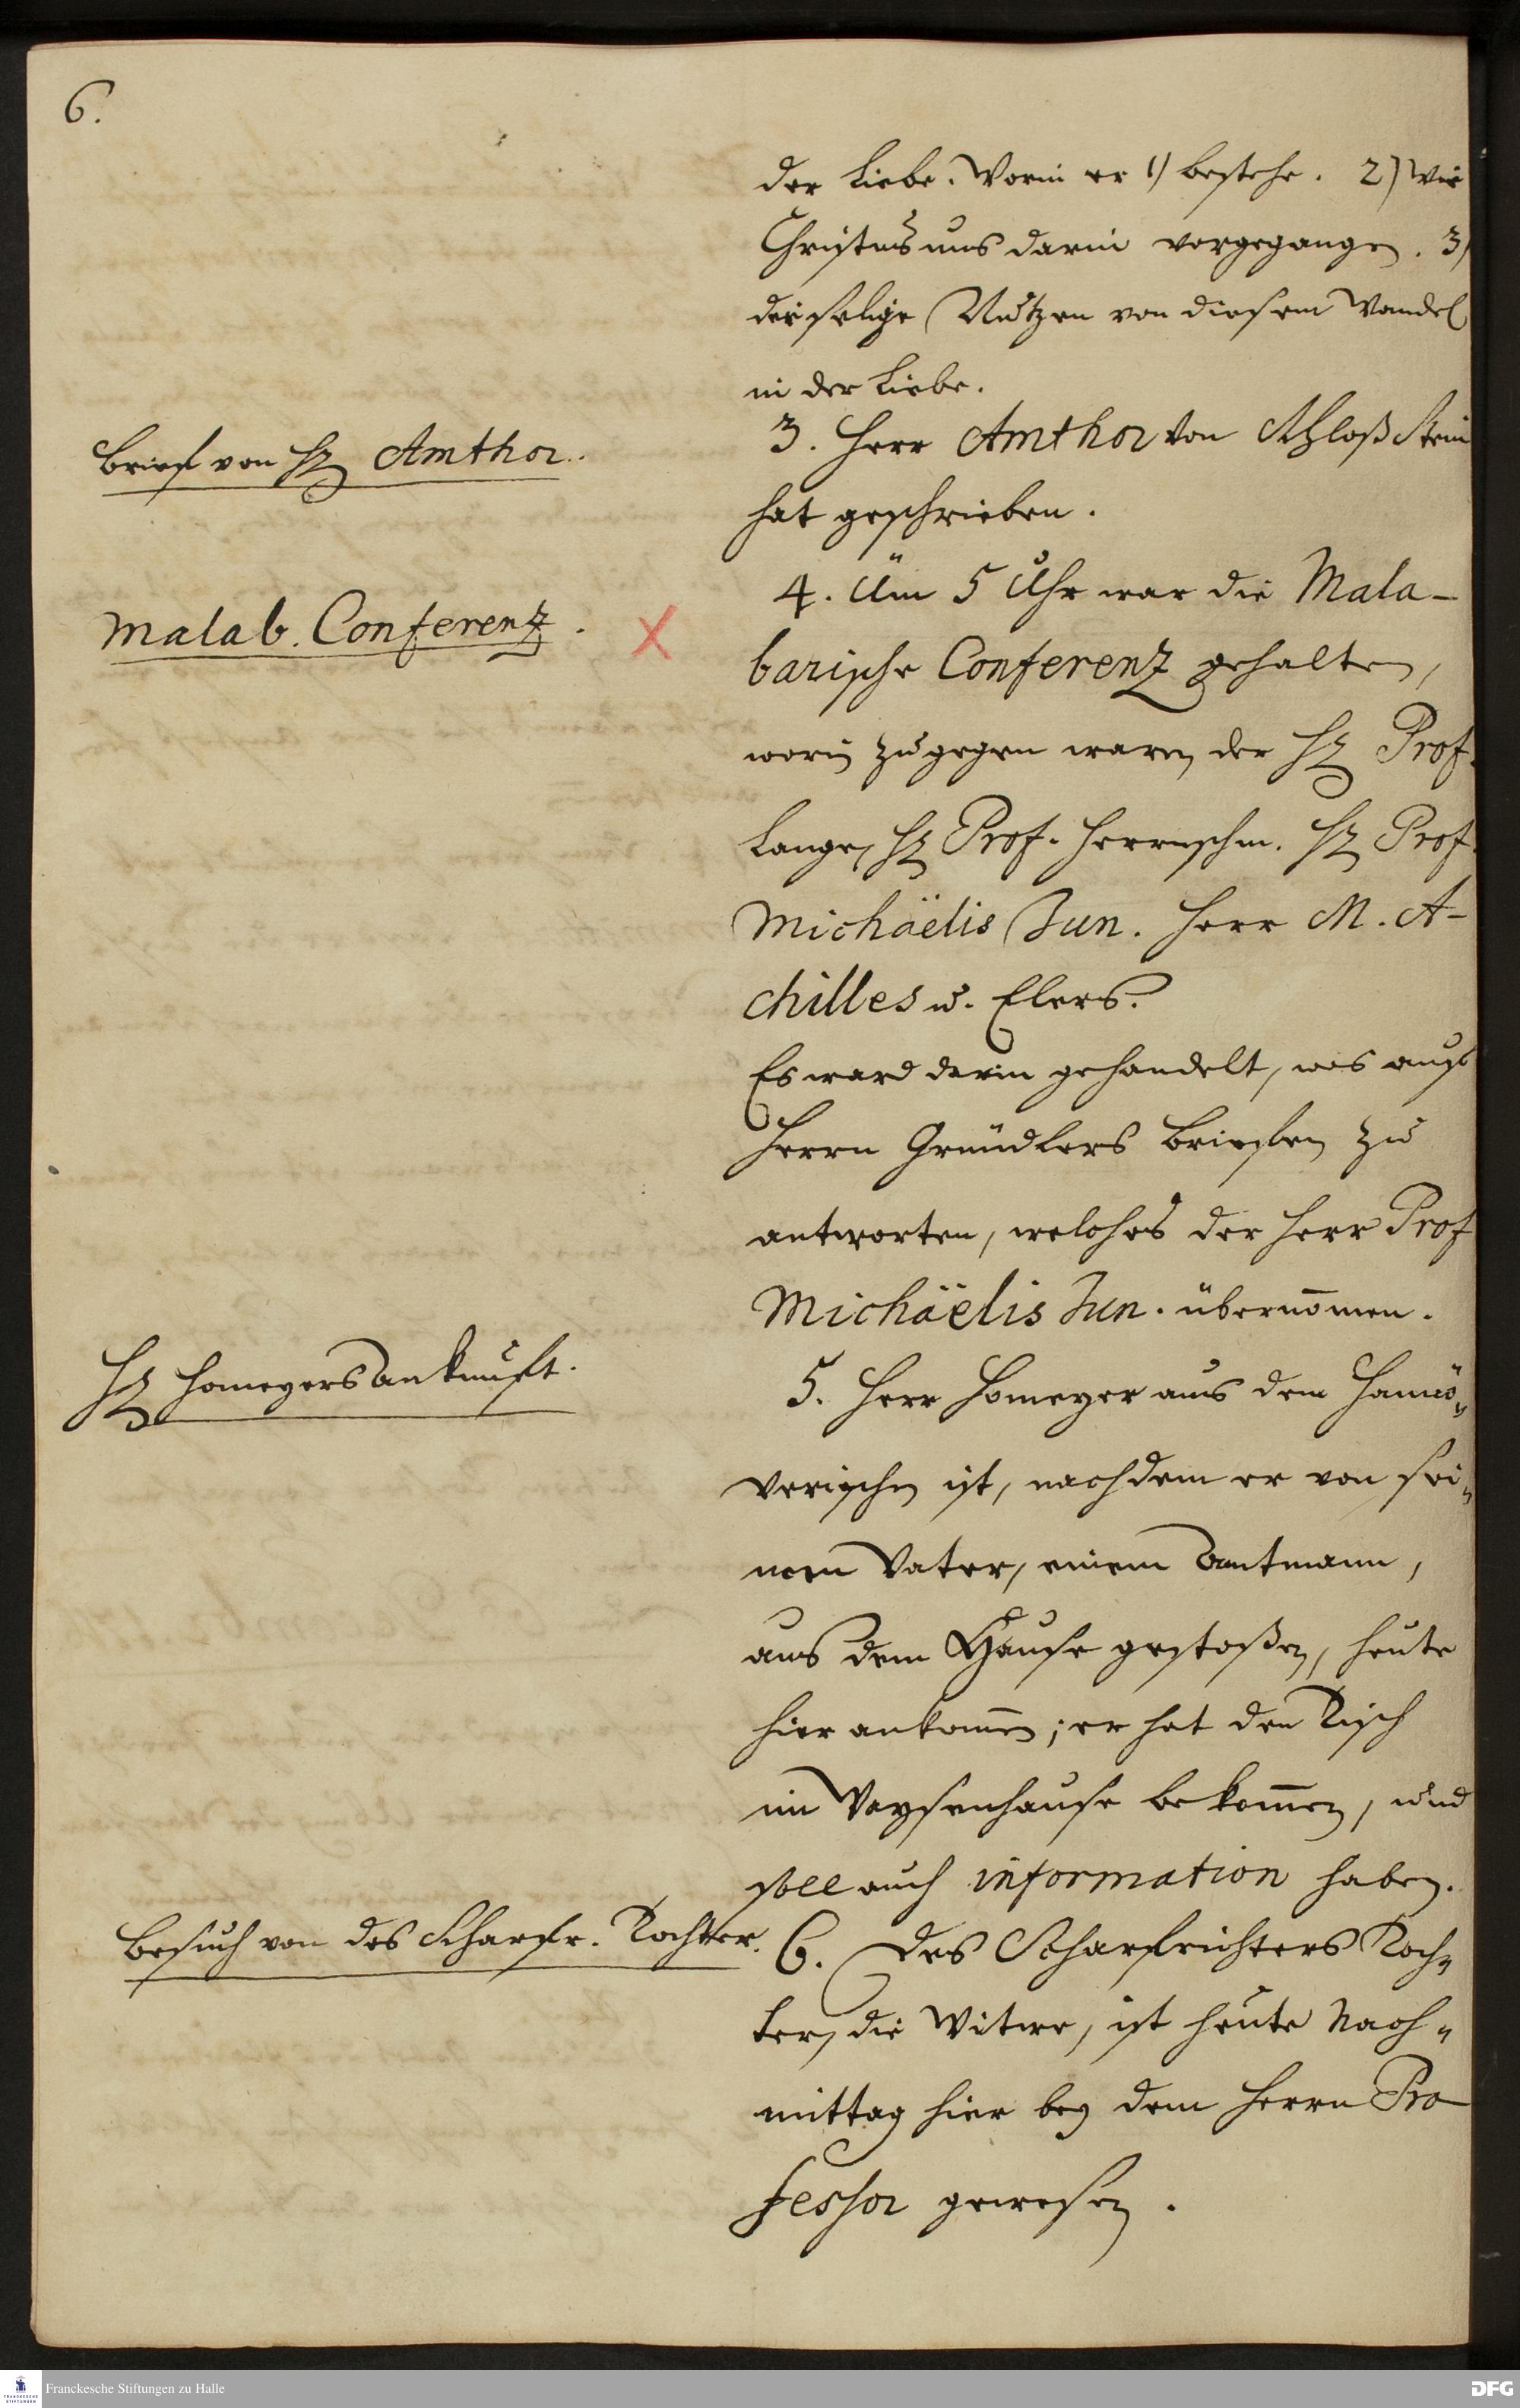 6.
der Liebe. Worin er 1) bestehe. 2) wie
Christus uns darin vorgegangen. 3)
der selige Nutzen von diesem Wandel
in der Liebe.
Brief von H. Amthor.
3. Herr Amthor von Schloß Stein
hat geschrieben.
Malab. Conferentz.
4. Um 5 Uhr war die Mala-
barische Conferentz gehalten,
worin zugegen waren der H. Prof.
Lange, H. Prof. Herrnschm. H. Prof.
Michaëlis Jun. Herr M. A-
chilles u. Elers.
Es ward darin gehandelt, was auf
Herrn Gründlers Briefen zu
antworten, welches der Herr Prof
Michaëlis Jun. übernom̄en.
H. Homeyers Ankunft.
5. Herr Homeyer aus dem Hannö-
verischen ist, nachdem er von sei-
nem Vater, einem Amtmann,
aus dem Hause gestoßen, heute
hier ankom̄en; er hat den Tisch
im Waysenhause bekom̄en, und
soll auch information haben.
Besuch von des Scharfr. Tochter.
6. Des Scharfrichters Toch-
ter, die Witwe, ist heute Nach-
mittag hier bey dem Herrn Pro-
fessor gewesen.
Franckesche Stiftungen zu Halle
DFG